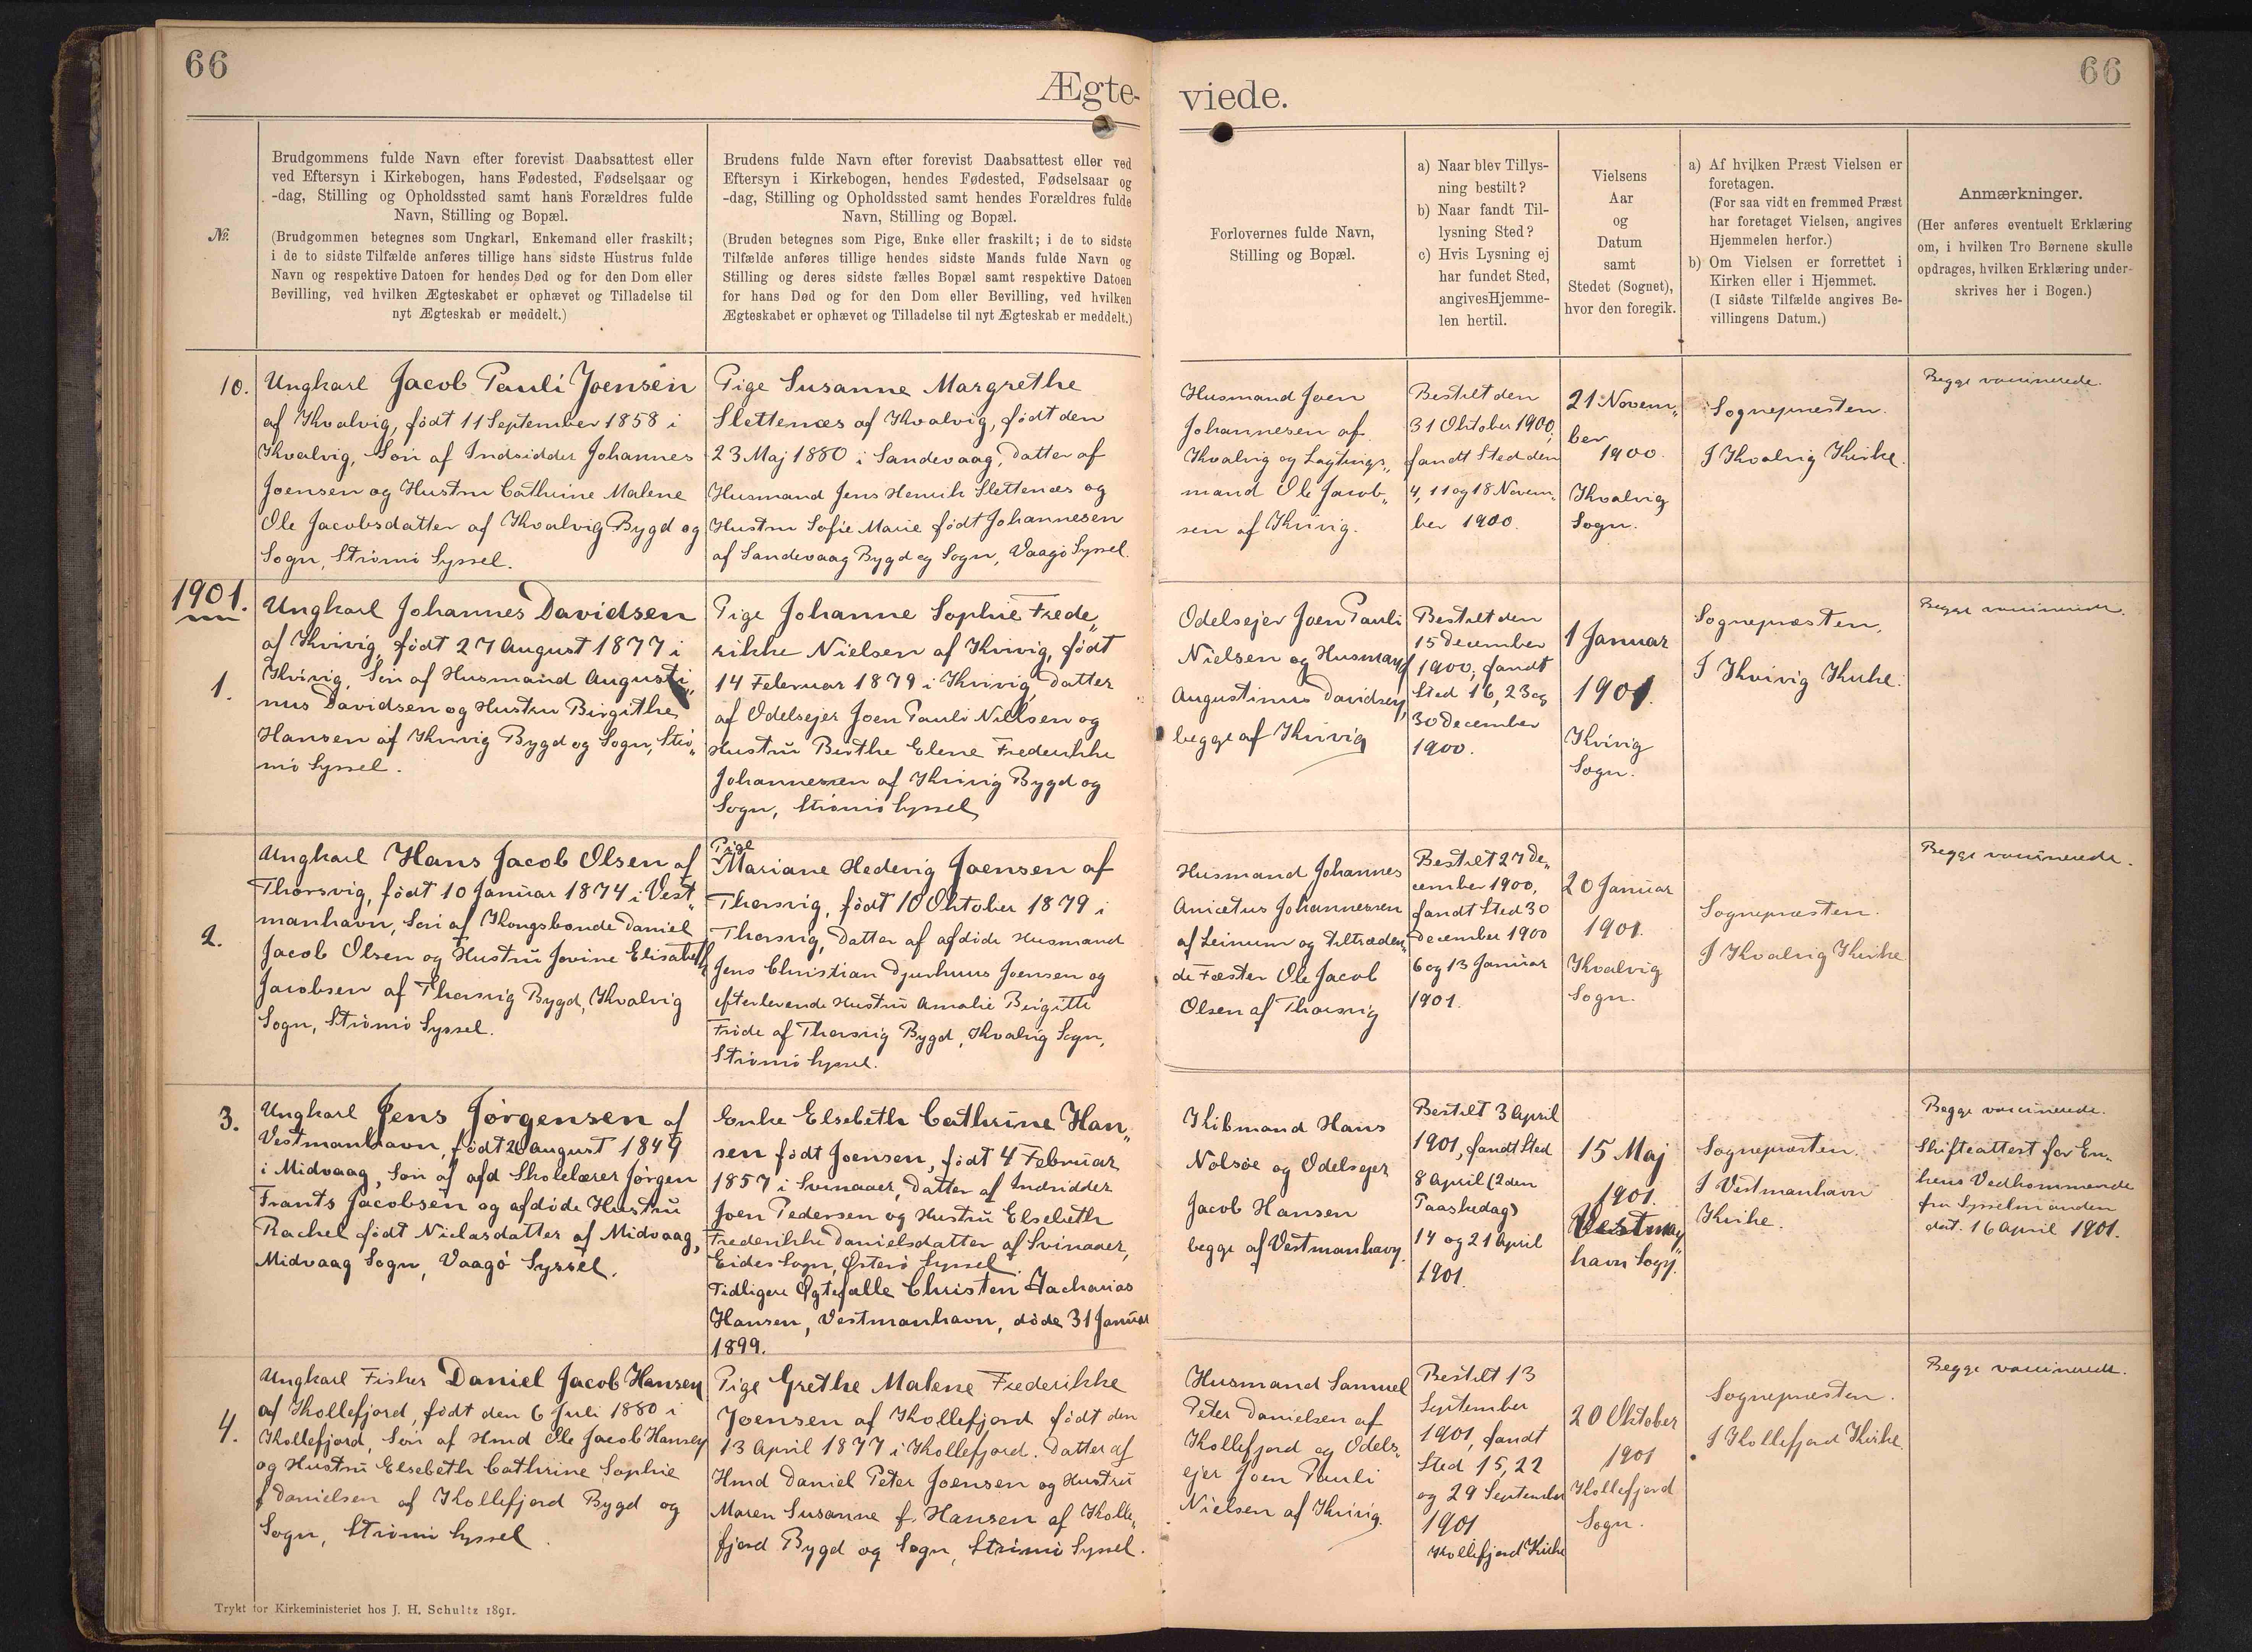 66
66
Ægte-
viede.
№.
Brudgommens fulde Navn efter forevist Daabsattest eller
ved Eftersyn i Kirkebogen, hans Fødested, Fødselsaar og
-dag, Stilling og Opholdssted samt hans Forældres fulde
Navn, Stilling og Bopæl.
(Brudgommen betegnes som Ungkarl, Enkemand eller fraskilt;
i de to sidste Tilfælde anføres tillige hans sidste Hustrus fulde
Navn og respektive Datoen for hendes Død og for den Dom eller
Bevilling, ved hvilken Ægteskabet er ophævet og Tilladelse til
nyt Ægteskab er meddelt.)
Brudens fulde Navn efter forevist Daabsattest eller ved
Eftersyn i Kirkebogen, hendes Fødested, Fødselsaar og
-dag, Stilling og Opholdssted samt hendes Forældres fulde
Navn, Stilling og Bopæl.
(Bruden betegnes som Pige, Enke eller fraskilt; i de to sidste
Tilfælde anføres tillige hendes sidste Mands fulde Navn og
Stilling og deres sidste fælles Bopæl samt respektive Datoen
for hans Død og for den Dom eller Bevilling, ved hvilken
Ægteskabet er ophævet og Tilladelse til nyt Ægteskab er meddelt.)
Forlovernes fulde Navn,
Stilling og Bopæl.
a) Naar blev Tillys-
ning bestilt?
b) Naar fandt Til-
lysning Sted?
c) Hvis Lysning ej
har fundet Sted,
angivesHjemme-
len hertil.
Vielsens
Aar
og
Datum
samt
Stedet (Sognet),
hvor den foregik.
a) Af hvilken Præst Vielsen er
foretagen.
(For saa vidt en fremmed Præst
har foretaget Vielsen, angives
Hjemmelen herfor.)
b) Om Vielsen er forrettet i
Kirken eller i Hjemmet.
(I sidste Tilfælde angives Be-
villingens Datum.)
Anmærkninger.
(Her anføres eventuelt Erklæring
om, i hvilken Tro Børnene skulle
opdrages, hvilken Erklæring under-
skrives her i Bogen.)
10.
Ungkarl Jacob Pauli Joensen
af Kvalvig, født 11 September 1858 i
Kvalvig, Søn af Indsidder Johannes
Joensen og Hustru Cathrine Malene
Ole Jacobsdatter af Kvalvig Bygd og
Sogn, Strømø Syssel.
Pige Susanne Margrethe
Slettenæs af Kvalvig, født den
23 Maj 1880 i Sandevaag, Datter af
Husmand Jens Henrik Slettenæs og
Hustru Sofie Marie født Johannesen
af Sandevaag Bygd og Sogn, Vaagø Syssel.
Husmand Joen
Johannesen af
Kvalvig og Lagtings„
mand Ole Jacob„
sen af Kvivig.
Bestilt den
31 Oktober 1900;
fandt Sted den
4, 11 og 18 Novem„
ber 1900.
21 Novem„
ber
1900.
Kvalvig
Sogn.
Sognepræsten.
I Kvalvig Kirke.
Begge vaccinerede.
1901.
1.
Ungkarl Johannes Davidsen
af Kvivig, født 27 August 1877 i
Kvivig, Søn af Husmand Augusti„
nus Davidsen og Hustru Birgithe
Hansen af Kvivig Bygd og Sogn, Strø„
mø Syssel.
Pige Johanne Sophie Frede„
rikke Nielsen af Kvivig, født
14 Februar 1879 i Kvivig, Datter
af Odelsejer Joen Pauli Nielsen og
Hustru Birthe Elene Frederikke
Johannesen af Kvivig Bygd og
Sogn, Strømø Syssel
Odelsejer Joen Pauli
Nielsen og Husmand
Augustinus Davidsen,
begge af Kvivig
Bestilt den
15 December
1900; fandt
Sted 16, 23 og
30 December
1900.
1 Januar
1901.
Kvivig
Sogn.
Sognepræsten,
I Kvivig Kirke.
Begge vaccinerede.
2.
Ungkarl Hans Jacob Olsen af
Thorsvig, født 10 Januar 1874 i Vest„
manhavn, Søn af Kongsbonde Daniel
Jacob Olsen og Hustru Jovine Elisabeth
Jacobsen af Thorsvig Bygd, Kvalvig
Sogn, Strømø Syssel.
Pige
Mariane Hedevig Joensen af
Thorsvig, født 10 Oktober 1879 i
Thorsvig, Datter af afdøde Husmand
Jens Christian Djurhuus Joensen og
efterlevende Hustru Amalie Birgitte
Fride af Thorsvig Bygd, Kvalvig Sogn,
Strømø Syssel.
Husmand Johannes
Anicetus Johannessen
af Leinum og tiltræden„
de Fæster Ole Jacob
Olsen af Thorsvig
Bestilt 27 De„
cember 1900,
fandt Sted 30
December 1900
6 og 13 Januar
1901.
20 Januar
1901.
Kvalvig
Sogn.
Sognepræsten.
I Kvalvig Kirke
Begge vaccinerede.
3.
Ungkarl Jens Jørgensen af
Vestmanhavn, født 26 August 1849
i Midvaag, Søn af afd Skolelærer Jørgen
Frants Jacobsen og afdøde Hustru
Rachel født Niclasdatter af Midvaag,
Midvaag Sogn, Vaagø Syssel.
Enke Elsebeth Cathrine Han„
sen født Joensen, født 4 Februar
1857 i Svinaaer, Datter af Indsidder
Joen Pedersen og Hustru Elsebeth
Frederikke Danielsdatter af Svinaaer,
Eides Sogn, Østerø Syssel
Tidligere Ægtefælle Christen Zacharias
Hansen, Vestmanhavn, døde 31 Januar
1899.
Kibmand Hans
Nolsøe og Odelsejer
Jacob Hansen
begge af Vestmanhavn.
Bestilt 3 April
1901, fandt Sted
8 April (2den
Paaskedag)
14 og 21 April
1901.
15 Maj
1901.
Vestman„
havn Sogn.
Sognepræsten.
I Vestmanhavn
Kirke.
Begge vaccinerede.
Skifteattest for En„
kens Vedkommende
fra Sysselmanden
dat. 16 April 1901.
4.
Ungkarl Fisker Daniel Jacob Hansen
af Kollefjord, født den 6 Juli 1880 i
Kollefjord, Søn af Hmd Ole Jacob Hansen
og Hustru Elsebeth Cathrine Sophie
f Danielsen af Kollefjord Bygd og
Sogn, Strømø Syssel.
Pige Grethe Malene Frederikke
Joensen af Kollefjord født den
13 April 1877 i Kollefjord. Datter af
Hmd Daniel Peter Joensen og Hustru
Maren Susanne f. Hansen af Kolle„
fjord Bygd og Sogn, Strømø Syssel.
Husmand Samuel
Peter Danielsen af
Kollefjord og Odels„
ejer Joen Pauli
Nielsen af Kvivig.
Bestilt 13
September
1901, fandt
Sted 15, 22
og 29 September
1901
Kollefjord Kirke
20 Oktober
1901
Kollefjord
Sogn.
Sognepræsten.
I Kollefjord Kirke.
Begge vaccinerede.
Trykt for Kirkeministeriet hos J. H. Schultz 1891.